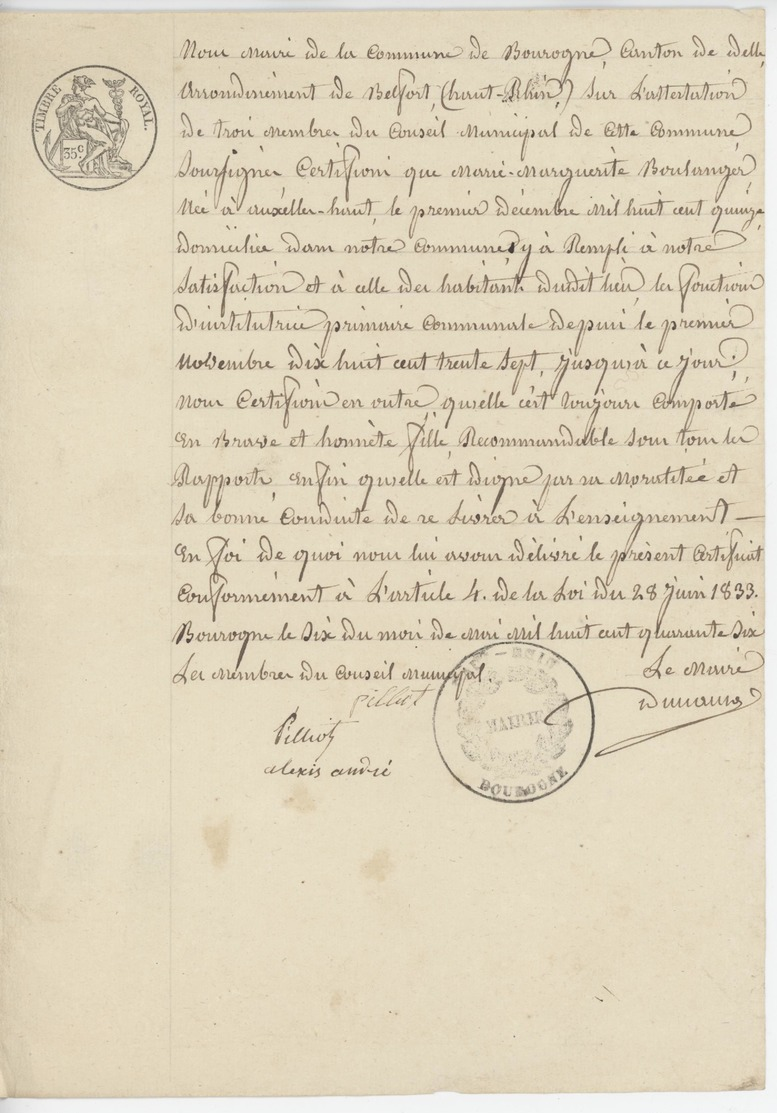 TIMBRE ROYAL.
35.c
Nous Maire de la Commune de Bourogne, Canton de delle,
Arrondissement de Belfort, (haut-Rhin,) Sur L'attestation
de trois Membres du Conseil Municipal de Cette Commune
Soussignés Certifions que Marie-Marguerite Boulanger,
Née à auxelles-haut, le premier décembre Mil huit cent quinze,
domiciliée dans notre Commune, y à Rempli à notre
Satisfaction et à celle des habitants dudit lieu, les fonctions
D'institutrice primaire Communale depuis le premier
Novembre dix huit cent trente Sept, jusqu'à ce jour;
Nous Certifions en outre, qu'elle c'est toujours Comporté
En Brave et honnète fille, Recommandable Sous tous les
Rapports, enfin qu'elle est digne par sa Moralitée et
Sa bonne Conduite de se Livrer à L'enseignement —
En foi de quoi nous lui avons délivré le présent Certificat
Conformément à L'article 4. de la Loi du 28 Juin 1833.
Bourogne le Six du mois de Mai Mil huit cent quarante Six
Les Membres du Conseil Municipal. Le Maire
pilliot
Pilliot
alexis andré
MAIRIE
BOUROGNE